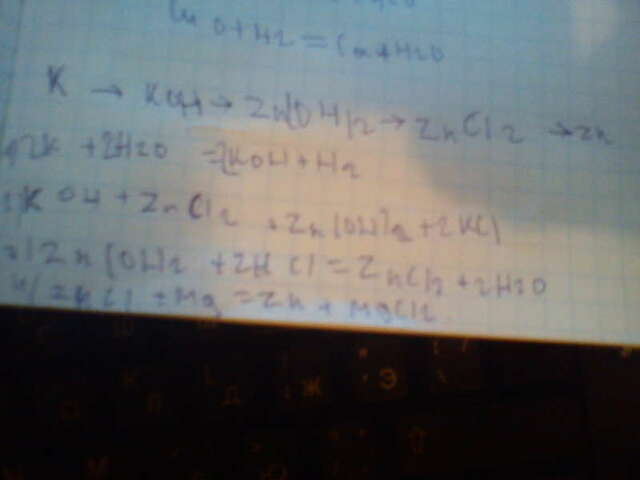 O+H2=Cu+H2O
K → KOH → Zn(OH)2 → ZnCl2 → Zn
2K + 2H2O = 2KOH + H2
KOH + ZnCl2 → Zn(OH)2 + 2KCl
Zn(OH)2 + 2HCl = ZnCl2 + 2H2O
+ Mg = Zn + MgCl2
Ж Э